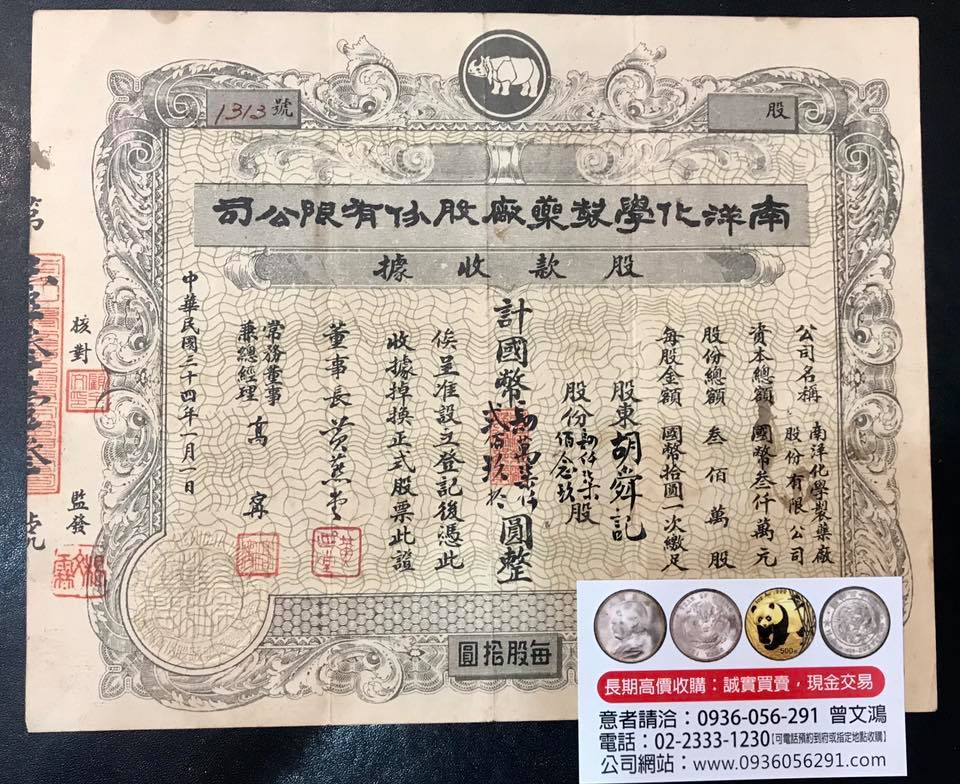 1313號
股
南洋化學製藥廠股份有限公司
股款收據
公司名稱 南洋化學製藥廠股份有限公司
資本總額 國幣叁仟萬元
股份總額 叁佰萬股
每股金額 國幣拾圓一次繳足
股東胡舜記
股份肆仟柒佰念玖股
計國幣肆萬柒仟弍百玖拾圓整
俟呈准設立登記後憑此
收據掉換正式股票此證
董事長 黃
常務董事
兼總經理 高
中華民國三十四年一月一日
核對
監發
第
號
每股拾圓
500元
長期高價收購：誠實買賣，現金交易
意者請洽：0936-056-291 曾文鴻
電話：02-2333-1230【可電話預約到府或指定地點收購】
公司網站：www.0936056291.com